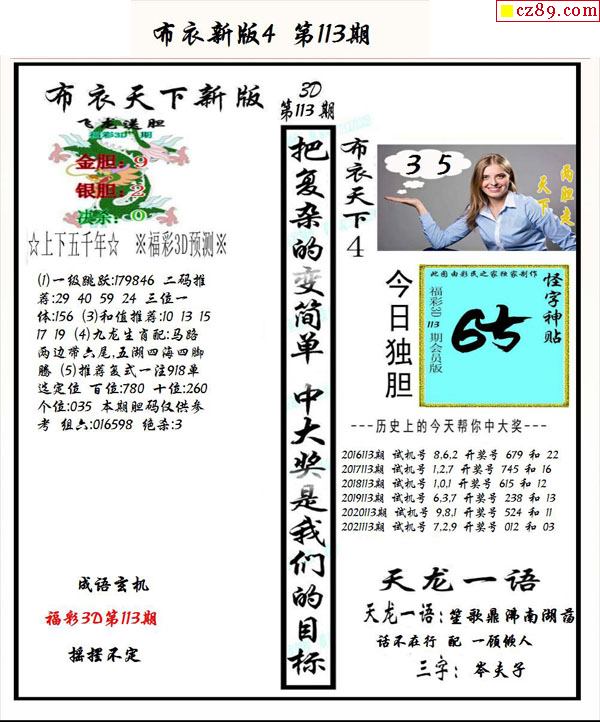 cz89.com
布衣新版4 第113期
布衣天下新版
飞龙送胆
福彩3D 期
金胆：9
银胆：2
决杀：0
☆上下五千年☆ ※福彩3D预测※
(1)一级跳跃:179846 二码推
荐:29 40 59 24 三位一
体:156 (3)和值推荐:10 13 15
17 19 (4)九龙生肖配:马路
两边带六尾,五湖四海四脚
腾 (5)推荐复式一注918单
选定位 百位:780 十位:260
个位:035 本期胆码仅供参
考 组六:016598 绝杀:3
成语玄机
福彩3D第113期
摇摆不定
3D
第113期
把复杂的变简单 中大奖是我们的目标
布衣天下4
3 5
两胆走天下
今日独胆
此图由彩民之家独家制作
福彩3D 113 期会员版
65
怪字神贴
---历史上的今天帮你中大奖---
2016113期 试机号 8,6,2 开奖号 679 和 22
2017113期 试机号 1,2,7 开奖号 745 和 16
2018113期 试机号 1,0,1 开奖号 615 和 12
2019113期 试机号 6,3,7 开奖号 238 和 13
2020113期 试机号 9,8,1 开奖号 524 和 11
2021113期 试机号 7,2,9 开奖号 012 和 03
天龙一语
天龙一语：笙歌鼎沸南湖荡
话不在行 配 一顾倾人
三字：岑夫子